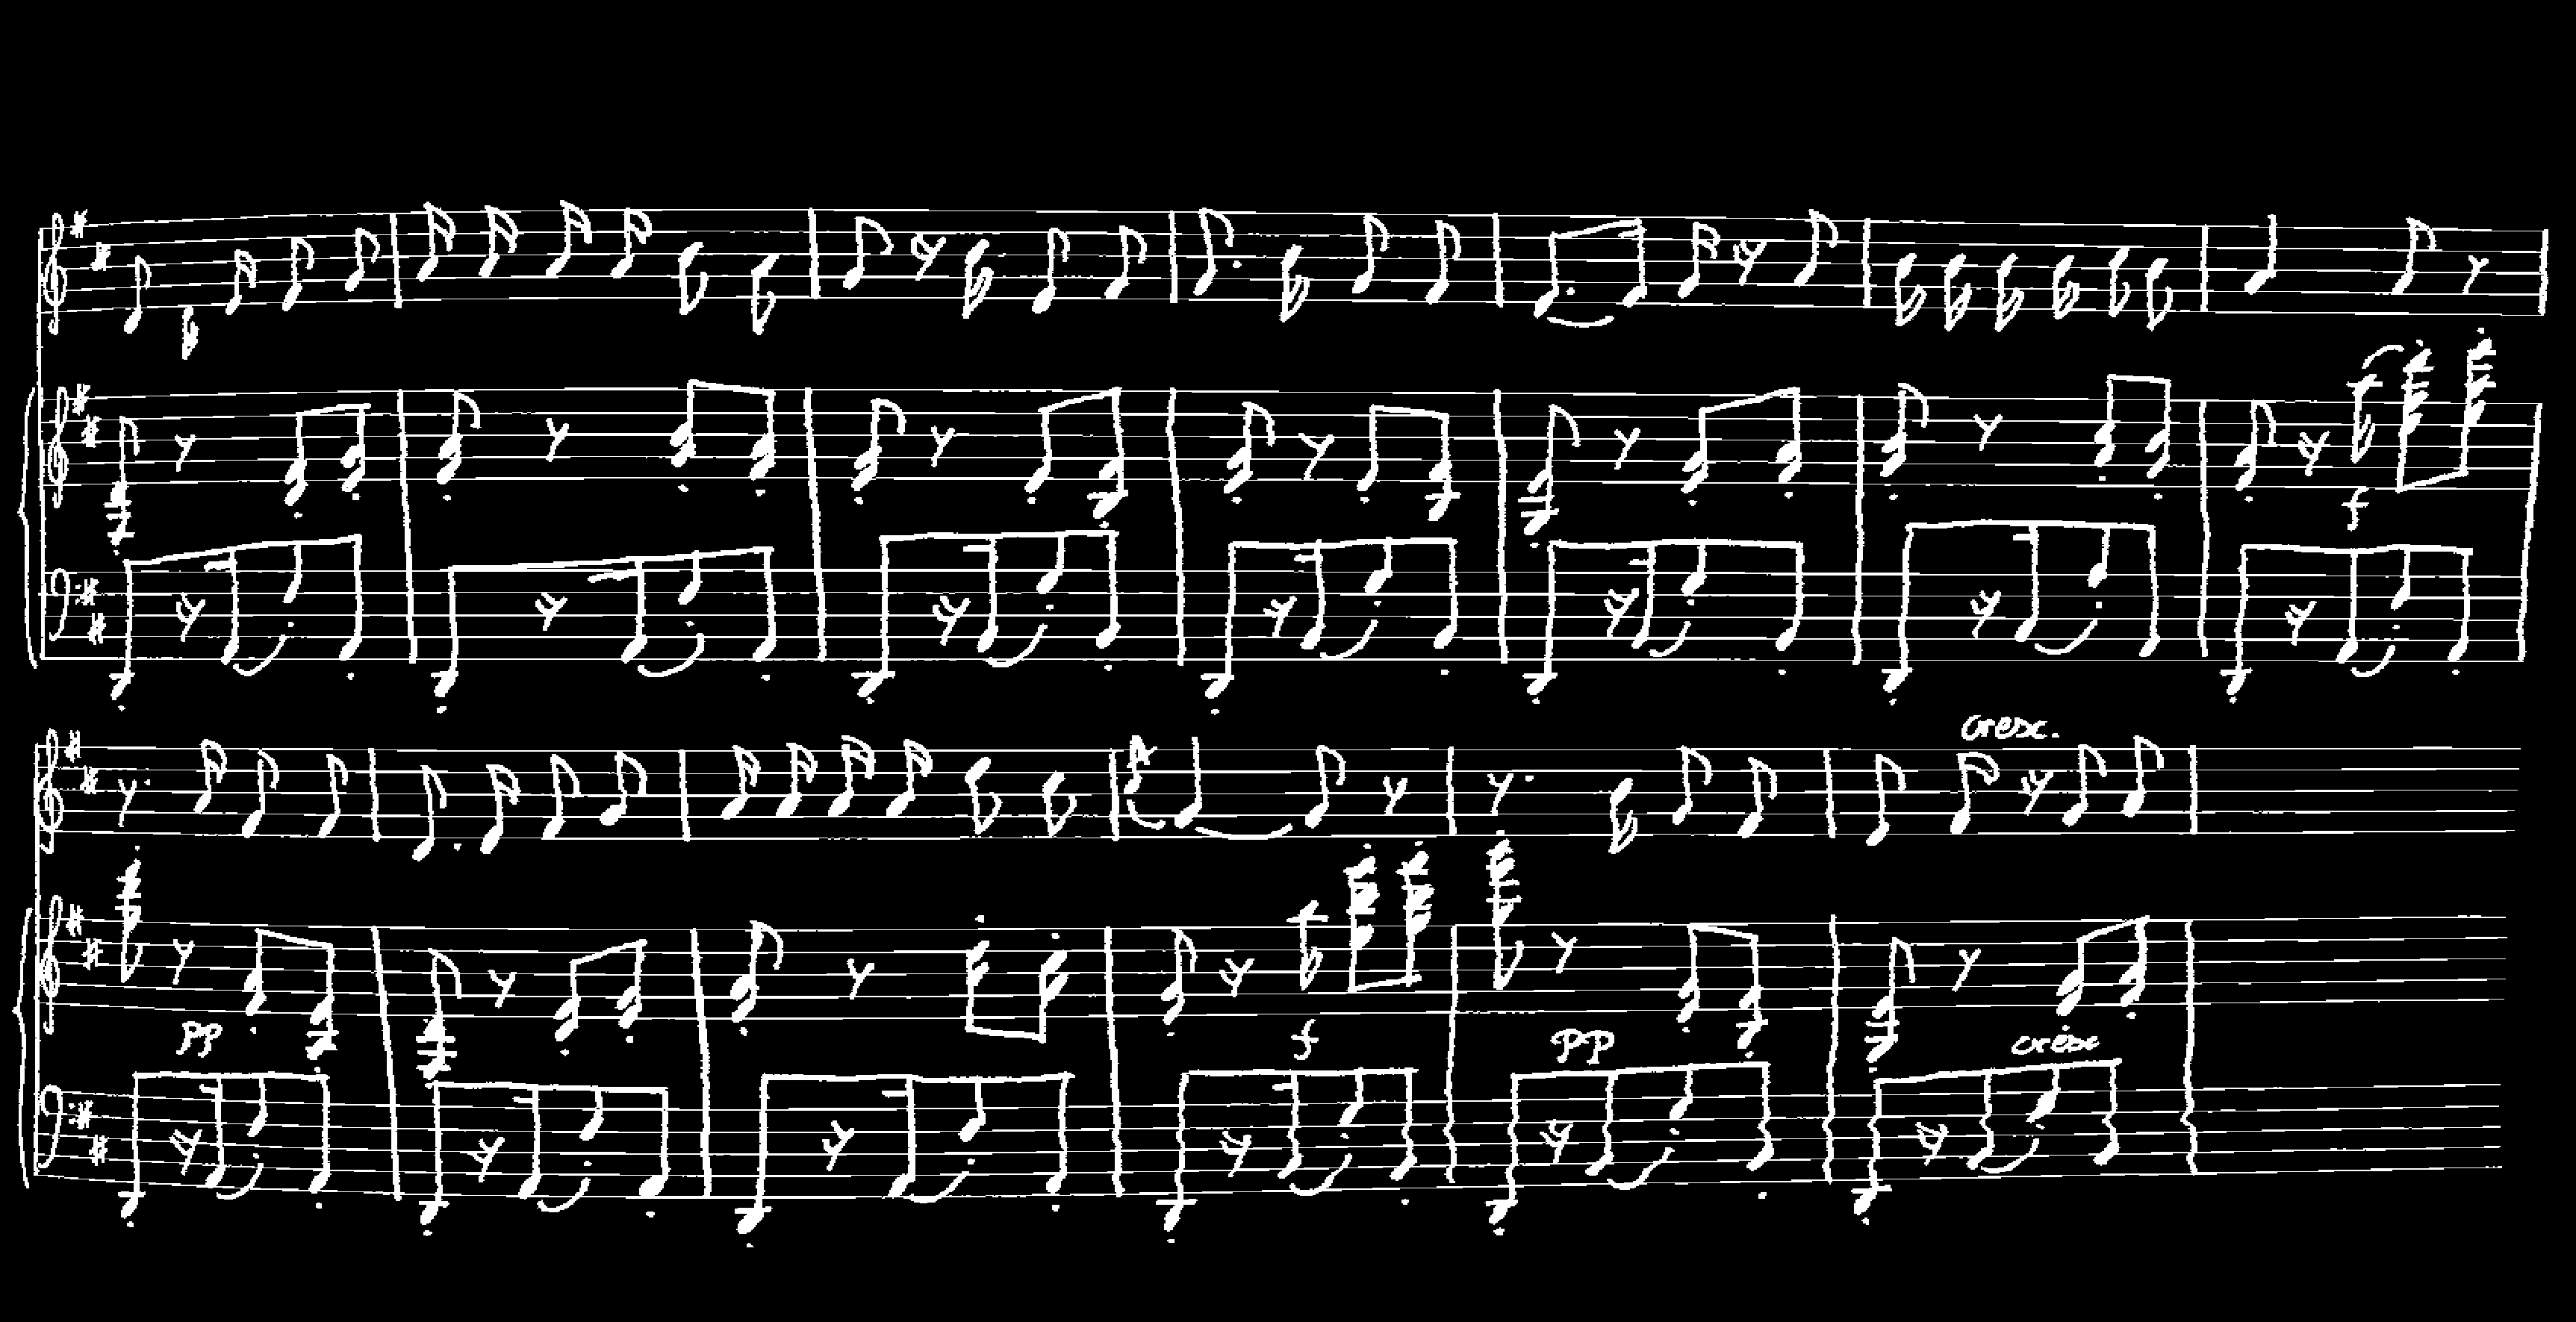 f
cresc.
pp f pp cresc